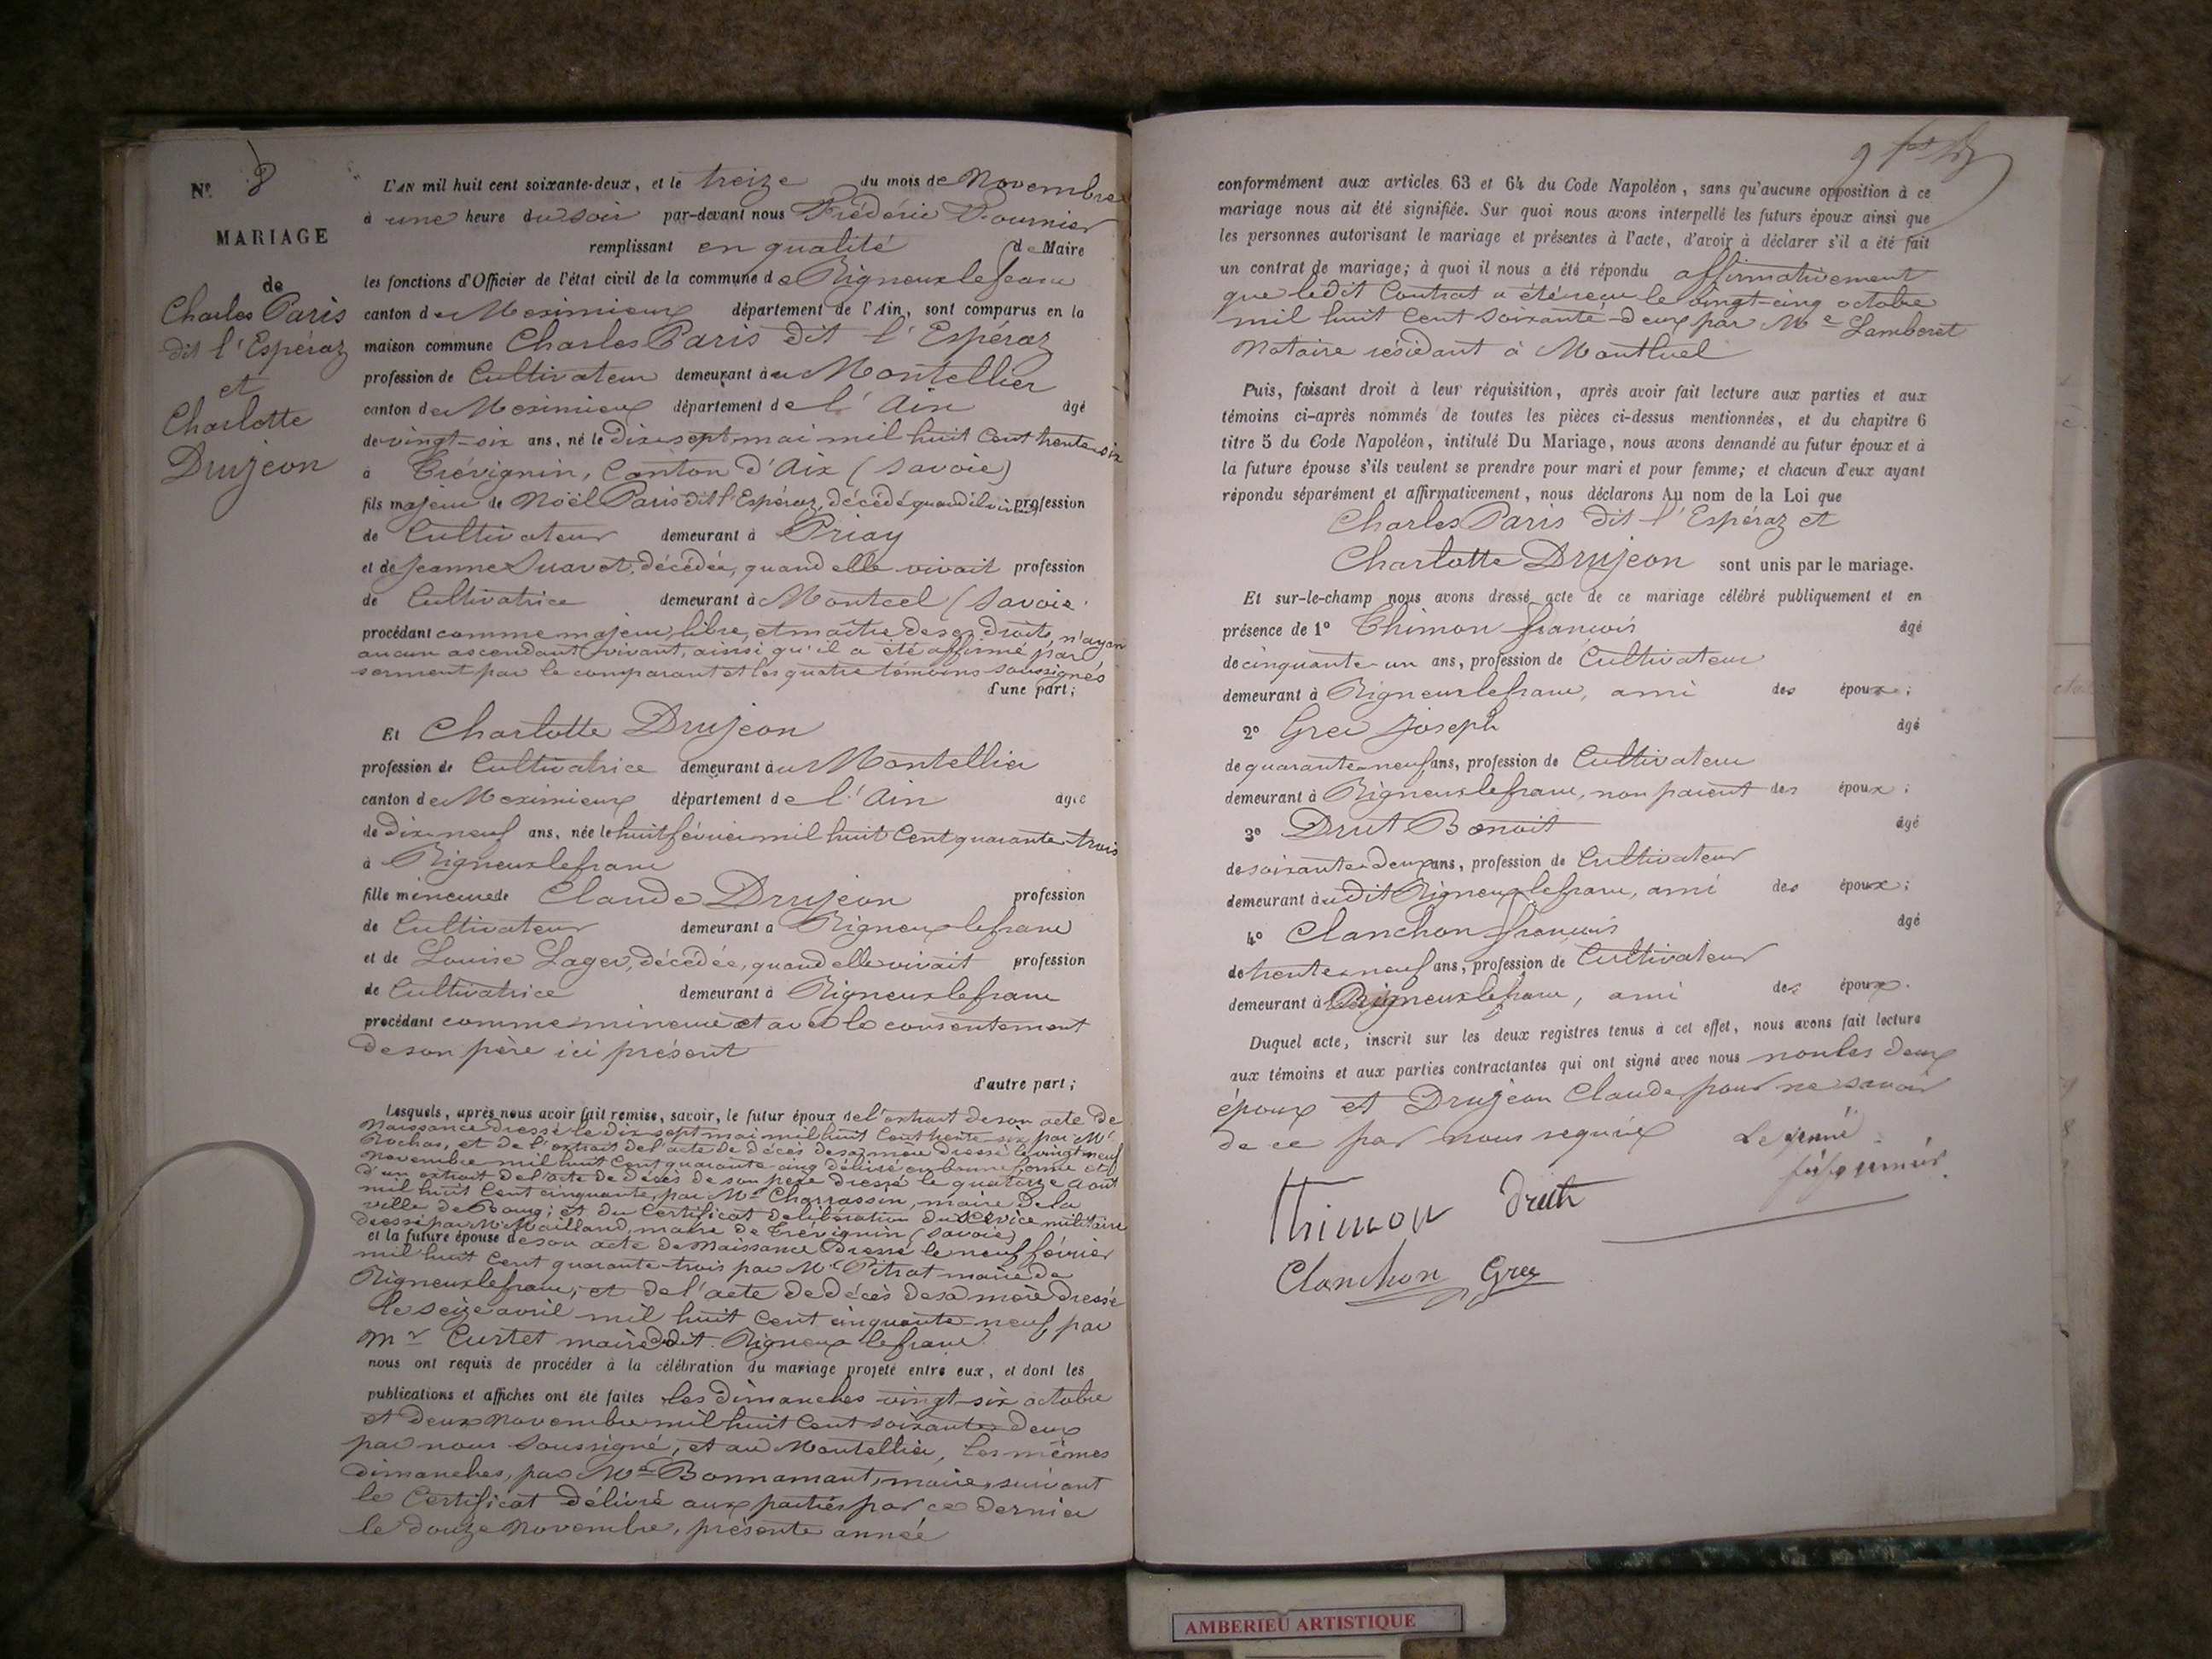 N.º 8
MARIAGE
de
Charles Paris
dit l'Espéraz
et
Charlotte
Drujeon
L'AN mil huit cent soixante-deux, et le treize du mois de Novembre
à une heure du soir par-devant nous Frédéric Fournier
remplissant en qualité de Maire
les fonctions d'Officier de l'état civil de la commune de Rigneux le franc
canton de Meximieux département de l'Ain, sont comparus en la
maison commune Charles Paris dit l'Espéraz
profession de Cultivateur demeurant au Montellier
canton de Meximieux département de l'Ain âgé
de vingt-six ans, né le dix-sept mai mil huit cent trente-six
à Trévignin, Canton d'Aix (Savoie)
fils majeur de Noël Paris dit l'Espéraz, décédé quand il vivait profession
de Cultivateur demeurant à Priay
et de Jeanne Suavet, décédée, quand elle vivait profession
de Cultivatrice demeurant à Montcel (Savoie
procédant comme majeur, libre, et maître de ses droits, n'ayant
aucun ascendant vivant, ainsi qu'il a été affirmé par
serment par le comparant et les quatre témoins soussignés
d'une part;
Et Charlotte Drujeon
profession de Cultivatrice demeurant au Montellier
canton de Meximieux département de l'Ain agée
de dix-neuf ans, née le huit février mil huit cent quarante-trois
à Rigneux le franc
fille mineure de Claude Drujeon profession
de Cultivateur demeurant à Rigneux le franc
et de Louise Lager, décédée, quand elle vivait profession
de Cultivatrice demeurant à Rigneux le franc
procédant comme mineure et avec le consentement
de son père ici présent
d'autre part;
Lesquels, après nous avoir fait remise, savoir, le futur époux de l'extrait de son acte de
Naissance dressé le dix-sept mai mil huit cent trente-six par Mr
Rochas, et de l'extrait de l'acte de décès de sa mère dressé le vingt-neuf
novembre mil huit cent quarante cinq délivré en bonne forme et
d'un extrait de l'acte de décès de son père dressé le quatorze août
mil huit cent cinquante, par Mr Charrassin, maire de la
ville de Bourg; et du certificat de libération du service militaire
dressé par Mr Mailland, maire de Trévignin (Savoie)
et la future épouse de son acte de Naissance dressé le neuf février
mil huit cent quarante-trois par Mr Pitrat maire de
Rigneux le franc; et de l'acte de décès de sa mère dressé
le seize avril mil huit cent cinquante-neuf par
Mr Curtet maire dudit Rigneux le franc
nous ont requis de procéder à la célébration du mariage projeté entre eux, et dont les
publications et affiches ont été faites les dimanches vingt-six octobre
et deux novembre mil huit cent soixante-deux
par nous soussigné, et au Montellier, les mêmes
dimanches, par Mr Bonnamant, maire, suivant
le Certificat délivré aux parties par ce dernier
le douze Novembre, présente année
conformément aux articles 63 et 64 du Code Napoléon, sans qu'aucune opposition à ce
mariage nous ait été signifiée. Sur quoi nous avons interpellé les futurs époux ainsi que
les personnes autorisant le mariage et présentes à l'acte, d'avoir à déclarer s'il a été fait
un contrat de mariage; à quoi il nous a été répondu affirmativement
que ledit Contrat a été reçu le vingt-cinq octobre
mil huit cent soixante-deux par Me Lamberet
Notaire résidant à Montluel
Puis, faisant droit à leur réquisition, après avoir fait lecture aux parties et aux
témoins ci-après nommés de toutes les pièces ci-dessus mentionnées, et du chapitre 6
titre 5 du Code Napoléon, intitulé Du Mariage, nous avons demandé au futur époux et à
la future épouse s'ils veulent se prendre pour mari et pour femme; et chacun d'eux ayant
répondu séparément et affirmativement, nous déclarons Au nom de la Loi que
Charles Paris dit l'Espéraz et
Charlotte Drujeon sont unis par le mariage.
Et sur-le-champ nous avons dressé acte de ce mariage célébré publiquement et en
présence de 1º Thimon françois âgé
de cinquante-un ans, profession de Cultivateur
demeurant à Rigneux le franc, ami des époux;
2º Grex Joseph âgé
de quarante-neuf ans, profession de Cultivateur
demeurant à Rigneux le franc, non parent des époux;
3º Drut Benoit âgé
de soixante-deux ans, profession de Cultivateur
demeurant audit Rigneux le franc, ami des époux;
4º Clanchon françois âgé
de trente-neuf ans, profession de Cultivateur
demeurant à Rigneux le franc, ami des époux.
Duquel acte, inscrit sur les deux registres tenus à cet effet, nous avons fait lecture
aux témoins et aux parties contractantes qui ont signé avec nous non les deux
époux et Drujeon Claude, pour ne savoir
de ce par nous requis
Thimon Drut
Clanchon Grex
AMBERIEU ARTISTIQUE